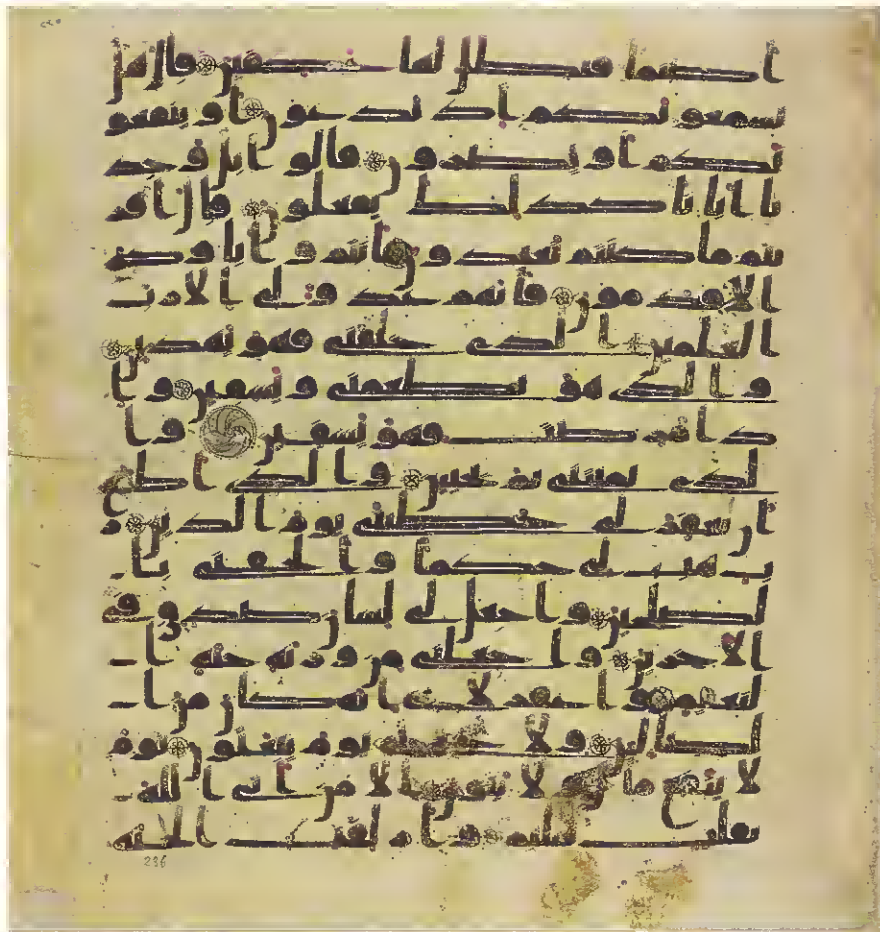 اصنما فنظل لها عكفين قال هل
يسمعونكم اذ تدعون او ينفعو
نكم او يضرون قالوا بل وجد
نا ابانا كذلك يفعلون قال افر
يتم ما كنتم تعبدون انتم واباوكم
الاقدمون فانهم عدو لي الا رب
العلمين الذي خلقني فهو يهدين
والذي هو يطعمني ويسقين وا
ذا مرضت فهو يشفين وا
لذي يميتني ثم يحيين والذي اطمع
ان يغفر لي خطيتي يوم الدين ر
ب هب لي حكما والحقني با
لصلحين واجعل لي لسان صدق في
الاخرين واجعلني من ورثة جنة ا
لنعيم واغفر لابي انه كان من ا
لضالين ولا تخزني يوم يبعثون يوم
لا ينفع مال ولا بنون الا من اتى الله
بقلب سليم وازلفت الجنة
236